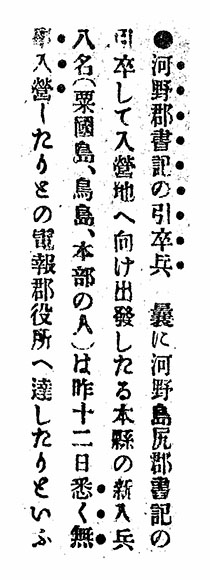 ●河野郡書記の引卒兵　曩に河野島尻郡書記の
引卒して入營地へ向け出發したる本縣の新入兵
八名(粟國島、鳥島、本部の人)は昨十二日悉く無
事入營したりとの電報郡役所へ達したりといふ